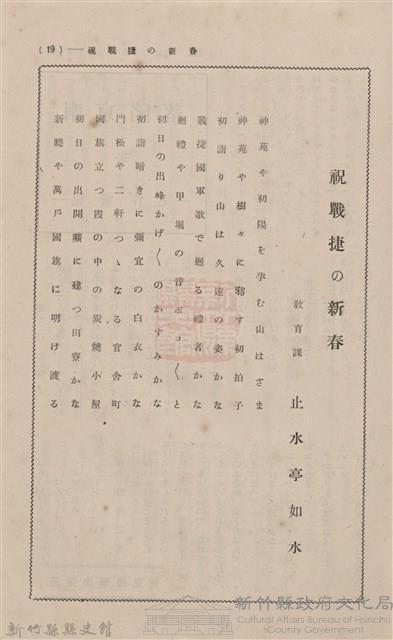 (19)——祝戰捷の新春
祝戰捷の新春
教育課 止水亭如水
神苑や初陽を孕む山はざま
神苑や樹々に谺す初拍子
初詣り山は久遠の姿かな
戰捷國軍歌で廻る禮者かな
廻禮や甲堀の音ポコ〱と
初日の出峰かげ〱のかすみかな
初詣暗きに彌宜の白衣かな
門松や二軒つゝなる官舍町
國旗立つ霞の中の炭燒小屋
初日の出開曠に建つ田寮かな
新廳や萬戶國旗に明け渡る
新竹縣縣史館
新竹縣政府文化局
Cultural Affairs Bureau of Hsinchu
County Government